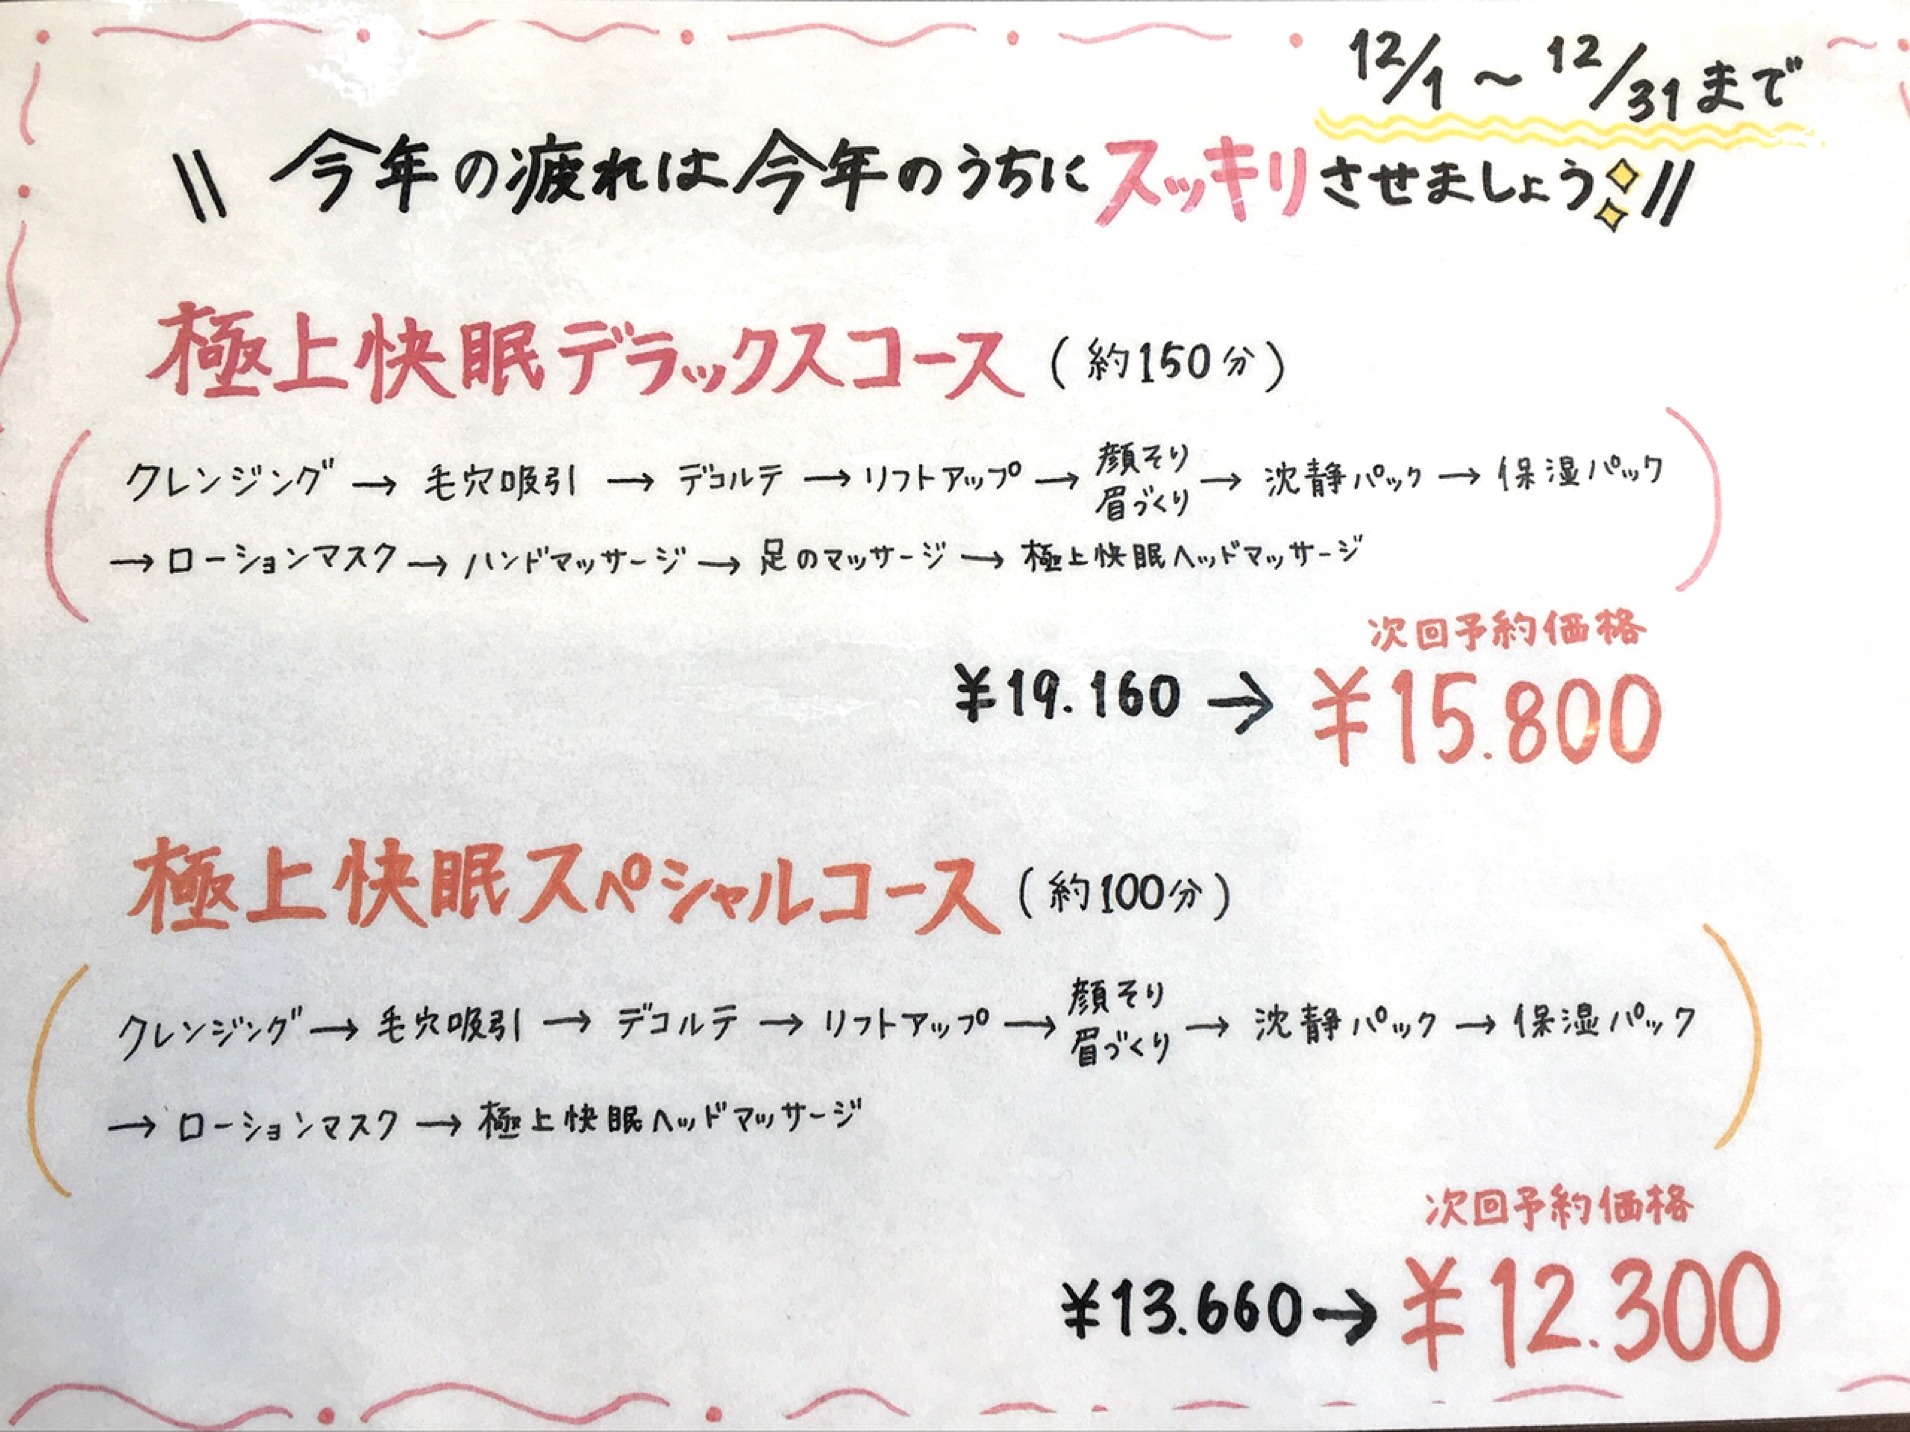 12/1 ～ 12/31まで
\\ 今年の疲れは今年のうちにスッキリさせましょう //
極上快眠デラックスコース (約150分)
クレンジング → 毛穴吸引 → デコルテ → リフトアップ → 顔そり 眉づくり → 沈静パック → 保湿パック
→ ローションマスク → ハンドマッサージ → 足のマッサージ → 極上快眠ヘッドマッサージ
次回予約価格
¥19.160 → ¥15.800
極上快眠スペシャルコース (約100分)
クレンジング → 毛穴吸引 → デコルテ → リフトアップ → 顔そり 眉づくり → 沈静パック → 保湿パック
→ ローションマスク → 極上快眠ヘッドマッサージ
次回予約価格
¥13.660 → ¥12.300